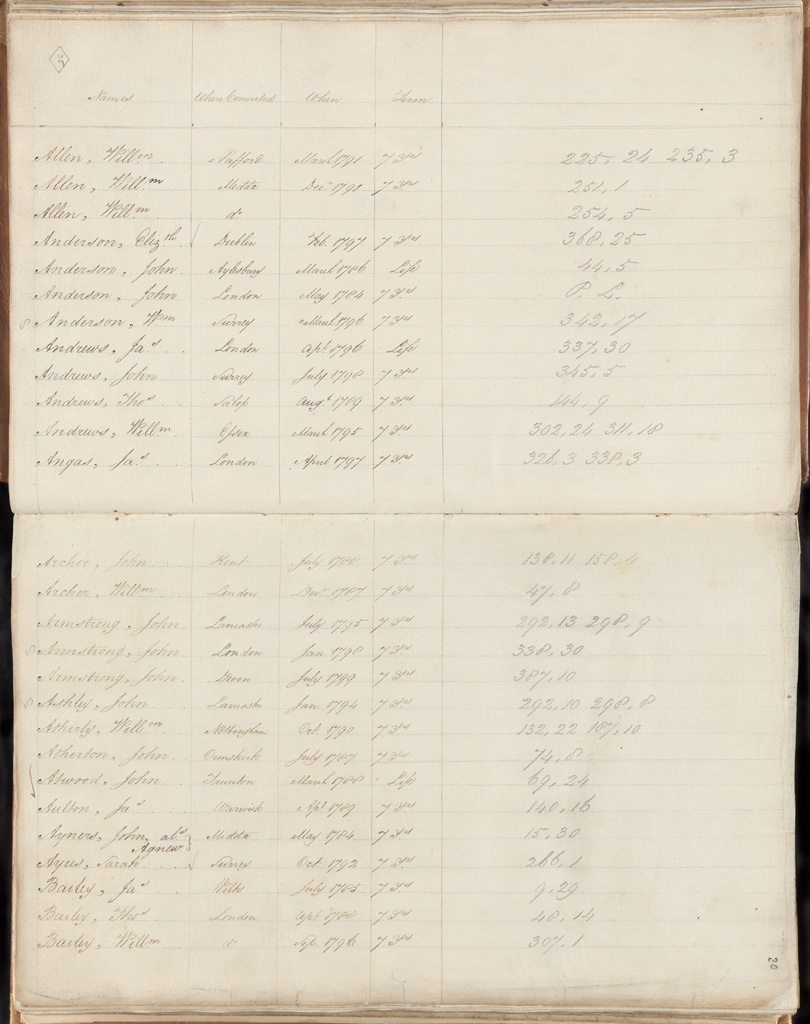 Names Where Convicted When Term
Allen, Willm Stafford March 1791 7 Yrs 225, 24 235, 3
Allen, Willm Middx Decr 1791 7 Yrs 251, 1
Allen, Willm do 254, 5
Anderson, Elizth Dublin Feb. 1797 7 Yrs 368, 25
Anderson, John Aylesbury March 1786 Life 44, 5
Anderson, John London May 1784 7 Yrs P. L.
Anderson, Wm Surrey March 1796 7 Yrs 342, 17
Andrews, Jas London Apl 1796 Life 337, 30
Andrews, John Surrey July 1798 7 Yrs 345, 5
Andrews, Thos Salop Augt 1789 7 Yrs 144, 9
Andrews, Willm Essex March 1795 7 Yrs 302, 24 311, 18
Angas, Jas London April 1797 7 Yrs 326, 3 338, 3
Archer, John Kent July 1788 7 Yrs 138, 11 158, 4
Archer, Willm London Decr 1787 7 Yrs 47, 8
Armstrong, John Lancaster July 1795 7 Yrs 292, 13 298, 9
Armstrong, John London Jan. 1798 7 Yrs 338, 30
Armstrong, John Devon July 1799 7 Yrs 387, 10
Ashley, John Lancaster Jan. 1794 7 Yrs 292, 10 298, 8
Asherly, Willm Nottingham Oct. 1790 7 Yrs 132, 22 187, 10
Asherton, John Ormskirk July 1787 7 Yrs 74, 8
Atwood, John Taunton March 1788 Life 69, 24
Aulton, Jas Warwick Apl 1789 7 Yrs 140, 16
Ayners, John, als Middx May 1784 7 Yrs 15, 30
Agnew
Ayres, Sarah Surrey Oct. 1792 7 Yrs 266, 1
Bailey, Jas Wilts July 1785 7 Yrs 9, 29
Bailey, Thos London Apl 1788 7 Yrs 48, 14
Bailey, Willm do Sep. 1796 7 Yrs 307, 1
20